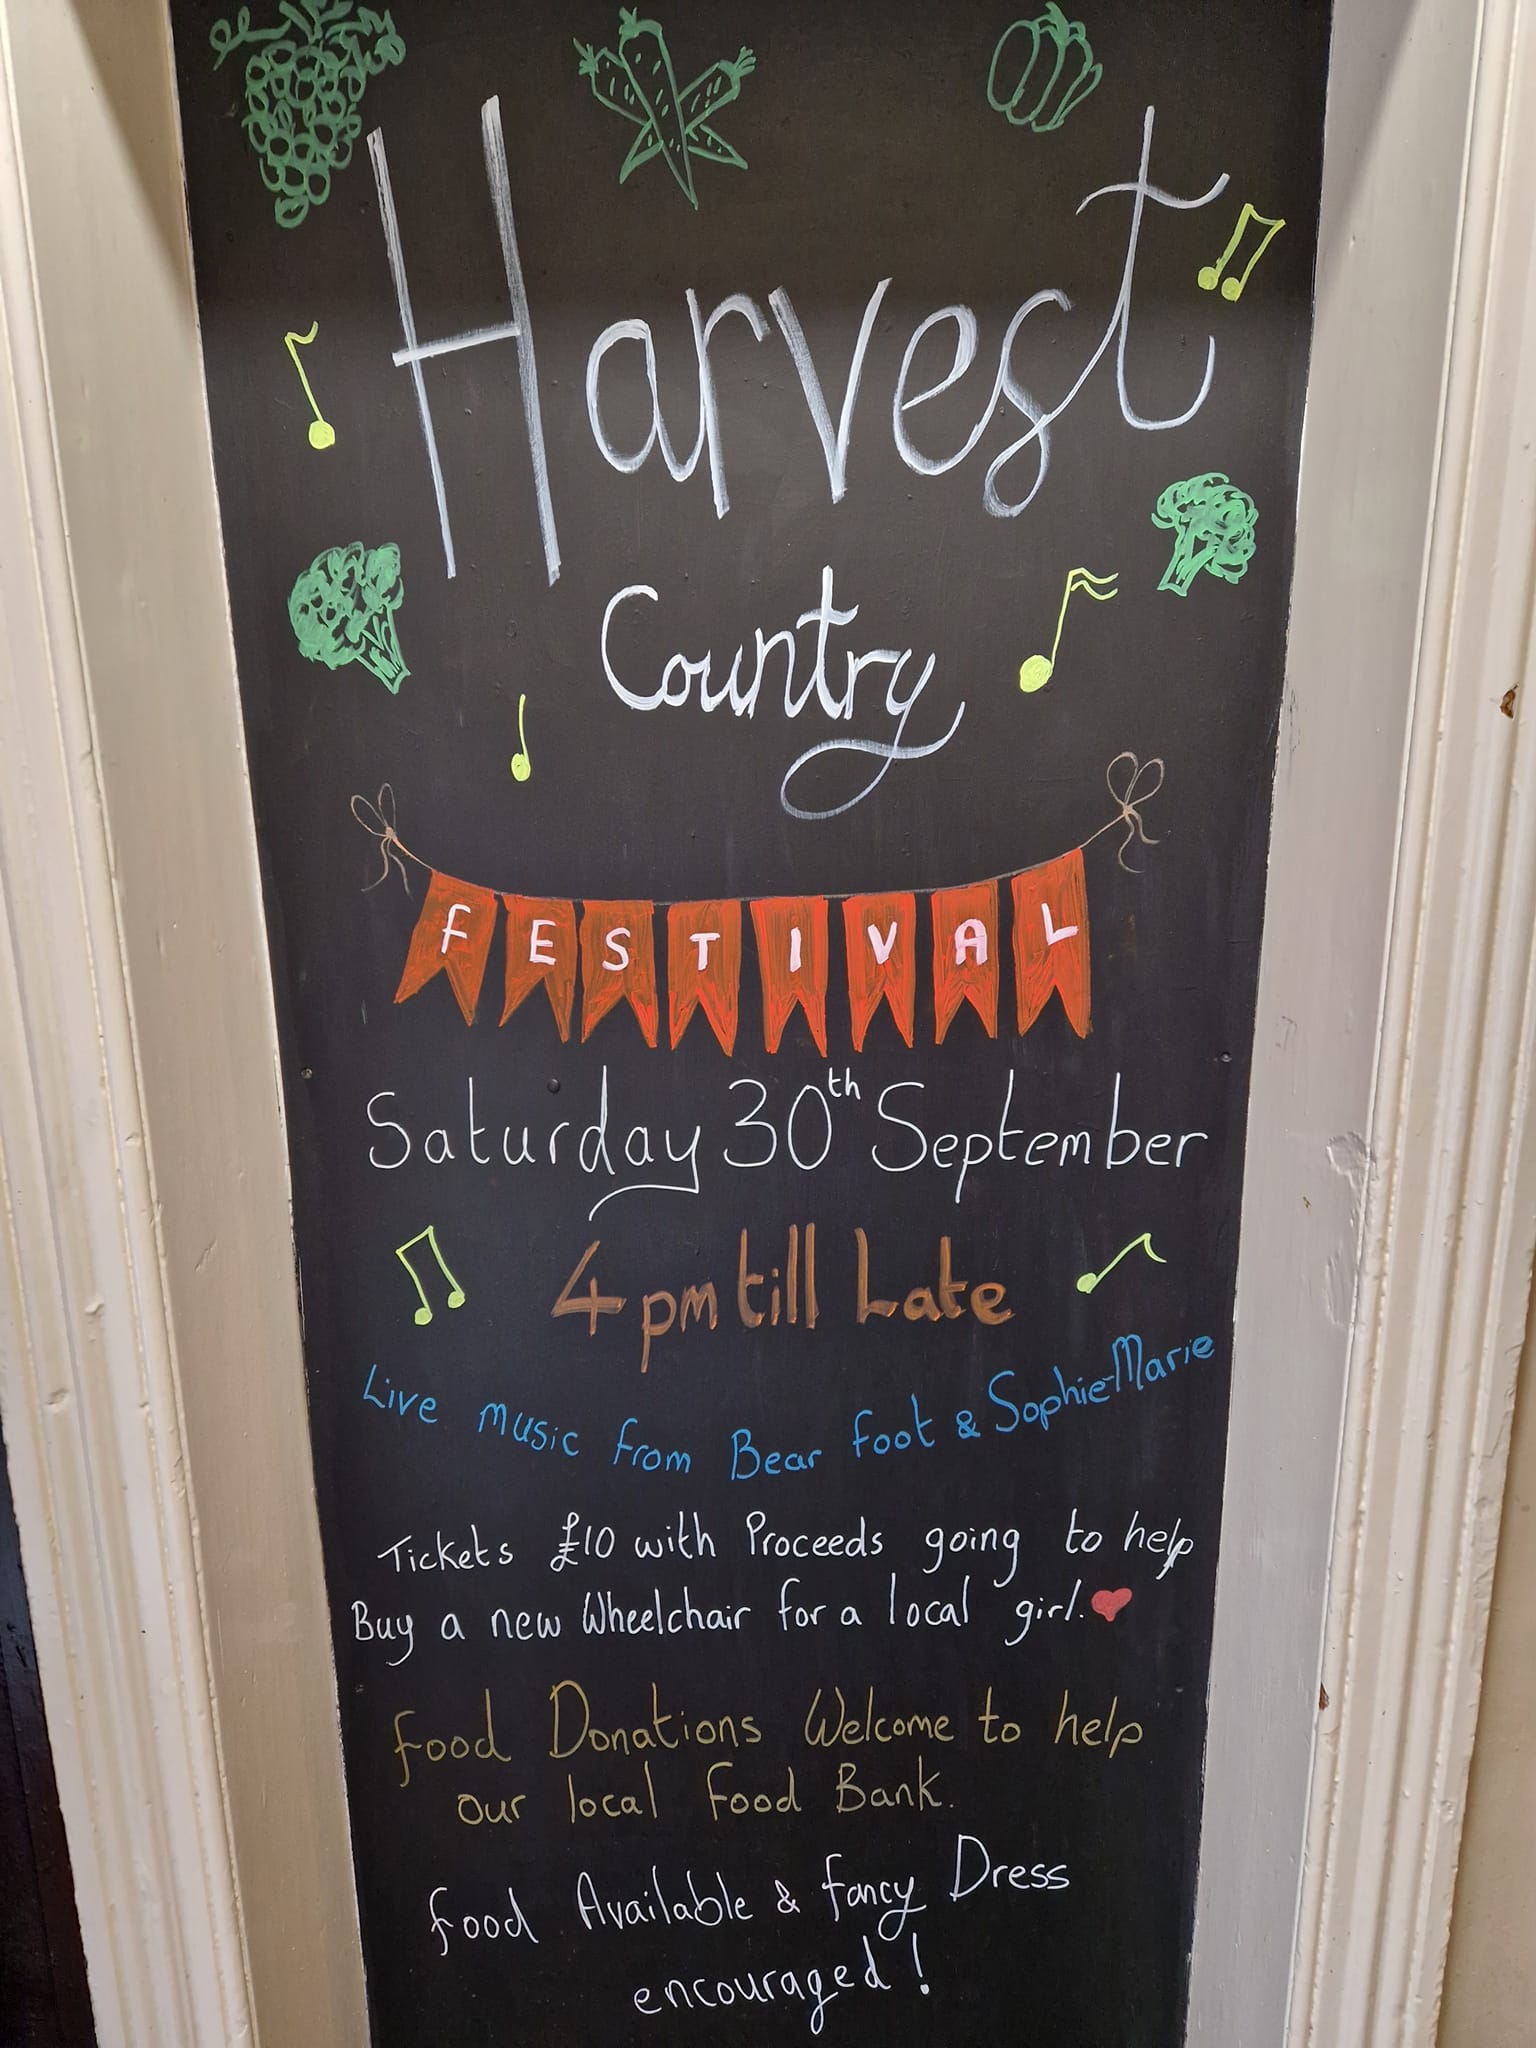 Harvest
Country
FESTIVAL
Saturday 30th September
4pm till Late
Live music from Bear foot & Sophie-Marie
Tickets £10 with Proceeds going to help
Buy a new Wheelchair for a local girl.
food Donations Welcome to help
our local Food Bank.
food Available & fancy Dress
encouraged!